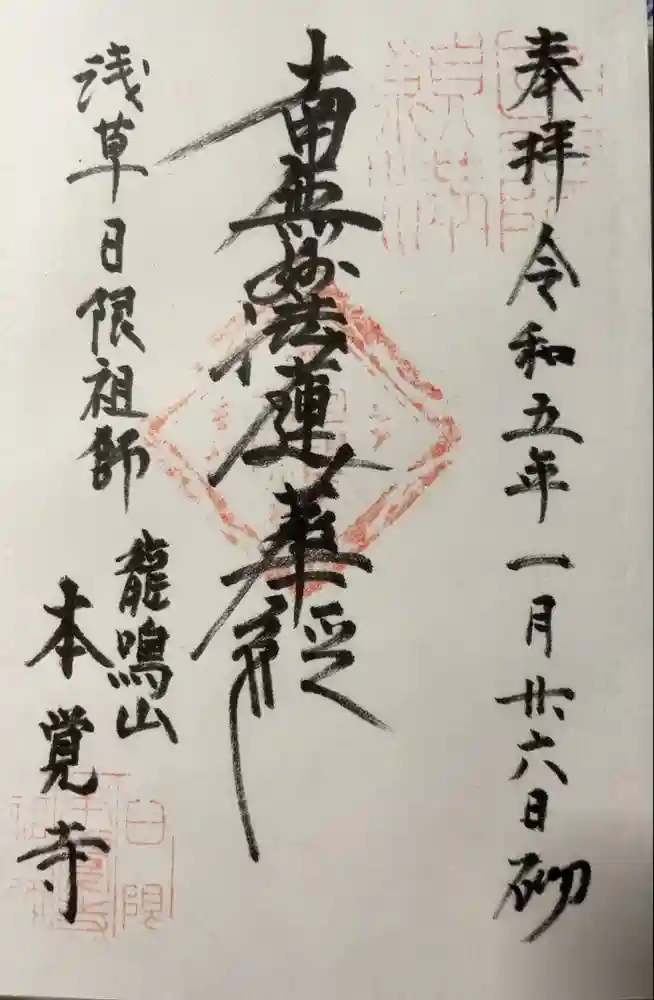 奉拝 令和五年一月廿六日 砌
南無妙法蓮華経
浅草日限祖師
龍鳴山
本覚寺
日限